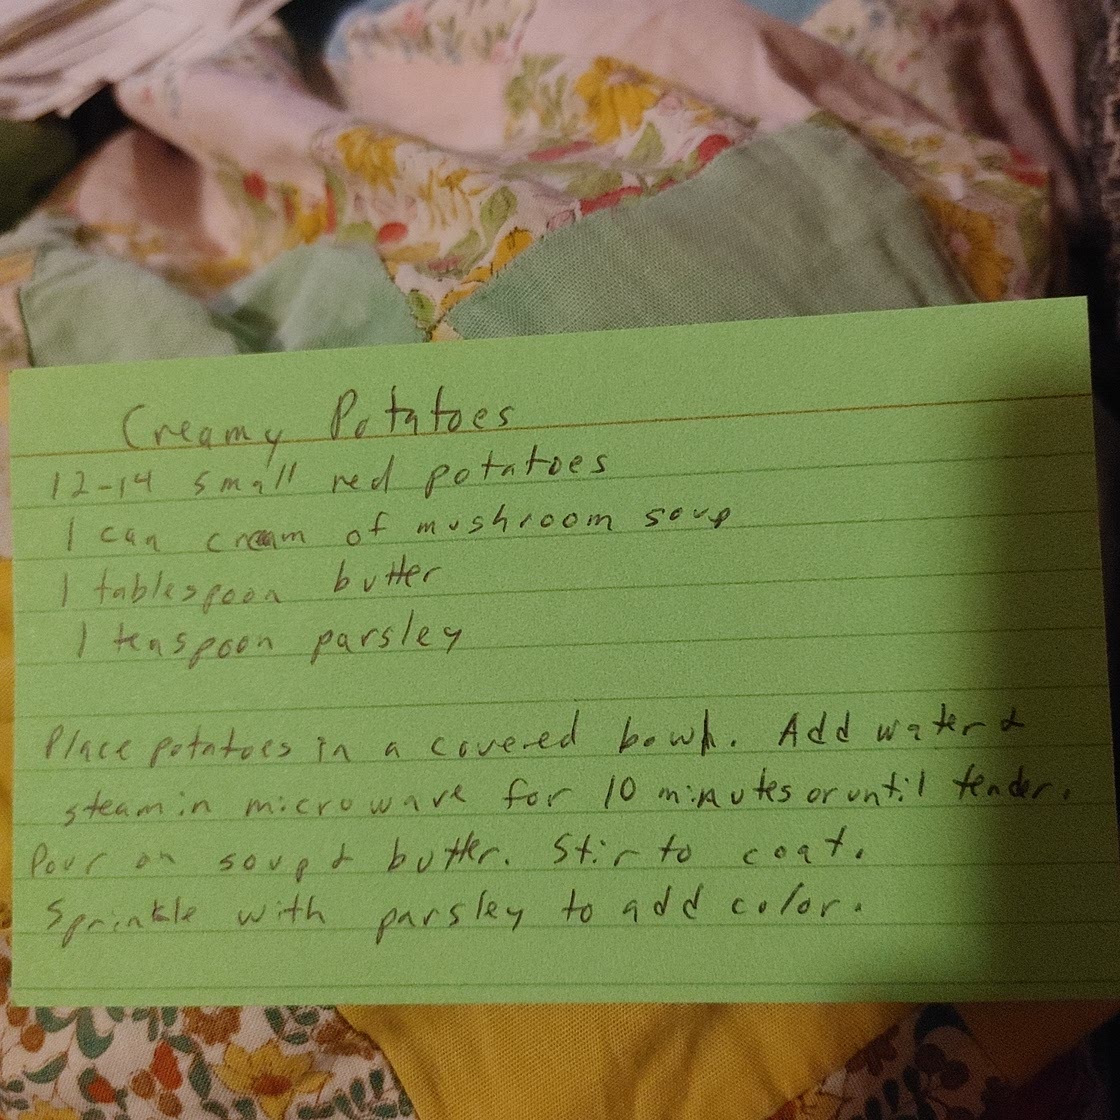 Creamy Potatoes
12-14 small red potatoes
1 can cream of mushroom soup
1 tablespoon butter
1 teaspoon parsley
Place potatoes in a covered bowl. Add water &
steam in microwave for 10 minutes or until tender.
Pour on soup & butter. Stir to coat.
Sprinkle with parsley to add color.